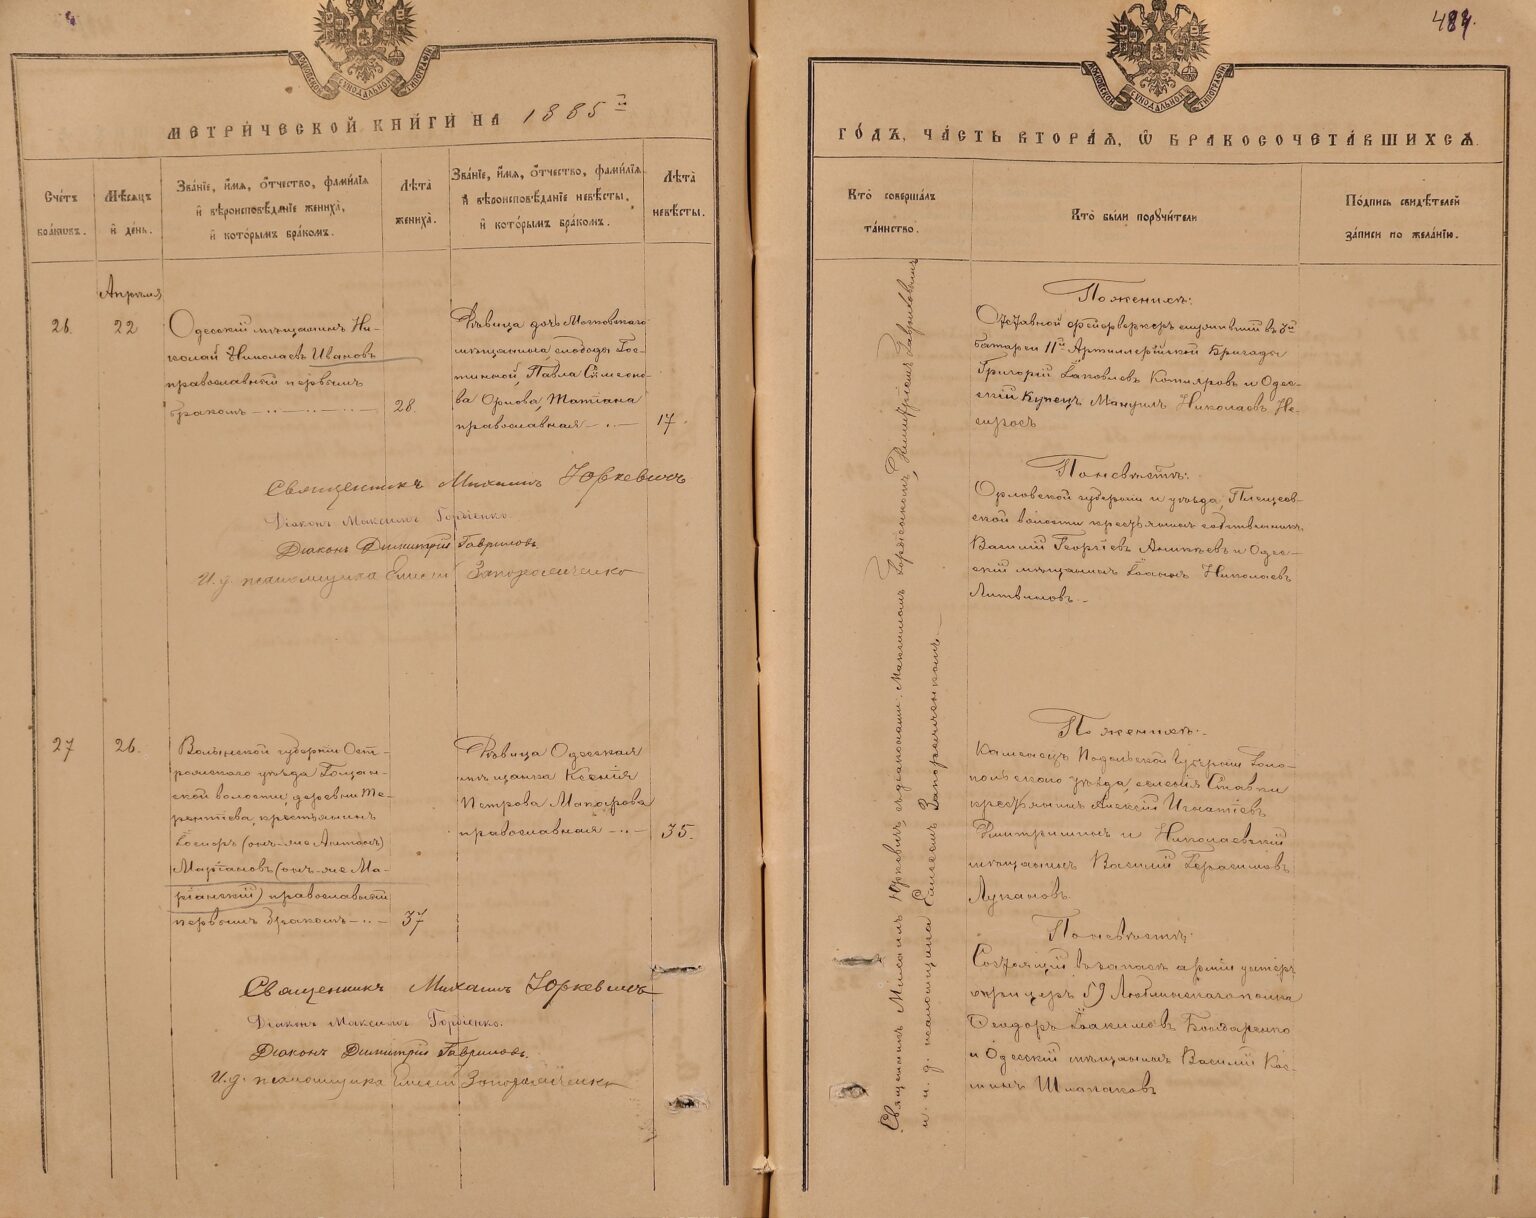 484.
МОСКОВСКОЙ СѴНОДАЛЬНОЙ ТИПОГРАФІИ
МЕТРИ́ЧЕСКОЙ КНИ́ГИ НА 1885й
Сче́тъ бра́ковъ.
Мѣ́сяцъ и҆ де́нь.
Зва́нїе, и҆́мѧ, ѻ҆́тчество, фами́лїѧ и҆ вѣроисповѣ́данїе жениха̀, и҆ кото́рымъ бра́комъ.
Лѣ́та жениха̀.
Зва́нїе, и҆́мѧ, ѻ҆́тчество, фами́лїѧ и҆ вѣроисповѣ́данїе невѣ́сты, и҆ кото́рымъ бра́комъ.
Лѣ́та невѣ́сты.
Апрѣля
26.
22
Одесскій мѣщанинъ Ни-
колай Николаевъ Ивановъ
православный первымъ
бракомъ
28.
Дѣвица дочь Московскаго
мѣщанина, слободы Гос-
тинной, Павла Симеоно-
ва Орлова, Татіана
православная
17.
Священникъ Михаилъ Юркевичъ
Діаконъ Максимъ Гордіенко
Діаконъ Димитрій Гавриловъ
И. д. псаломщика Елисей Запорожченко
27
26.
Волынской губерніи Ост-
рожскаго уѣзда Гощан-
ской волости, деревни Те-
рентіева, крестьянинъ
Іосифъ (онъ-же Антонъ)
Маріановъ (онъ-же Ма-
ріанскій) православный
первымъ бракомъ
37
Дѣвица Одесская
мѣщанка Ксенія
Петрова Макарова
православная
35.
Священникъ Михаилъ Юркевичъ
Діаконъ Максимъ Гордіенко.
Діаконъ Димитрій Гавриловъ.
И. д. псаломщика Елисей Запорожченко
МОСКОВСКОЙ СѴНОДАЛЬНОЙ ТИПОГРАФІИ
ГО́ДЪ, ЧА́СТЬ ВТОРА́Ѧ, Ѽ БРАКОСОЧЕТА́ВШИХСѦ.
Кто̀ соверша́лъ та́инство.
Кто̀ бы́ли порꙋчи́тели
По́дпись свидѣ́телей за́писи по жела́нїю.
Священникъ Михаилъ Юркевичъ, съ діаконами: Максимомъ Гордіенкомъ, Димитріемъ Гавриловымъ
и и. д. псаломщика Елисеемъ Запорожченкомъ.
По женихѣ:
Отставной фейерверкеръ служившій въ 3й
батареи 11й Артиллерійской Бригады
Григорій Іаковлевъ Котляровъ и Одес-
скій Купецъ Мануилъ Николаевъ Не-
По невѣстѣ:
Орловской губерніи и уѣзда, Плещеев-
ской волости крестьянинъ собственникъ
Василій Георгіевъ Аникѣевъ и Одес-
скій мѣщанинъ Іоаннъ Николаевъ
Литвиновъ.
По женихѣ:
Каменецъ Подольской Губерніи
уѣзда, селенія Ставки
крестьянинъ Алексій Игнатіевъ
Дмитришинъ и Николаевскій
мѣщанинъ Василій Герасимовъ
Лукановъ
По невѣстѣ:
Состоящій въ запасѣ арміи унтеръ
офицеръ 59 Люблинскаго полка
Ѳеодоръ Іоакимовъ Бондаренко
и Одесскій мѣщанинъ Василій Кос-
минъ Шлапаковъ